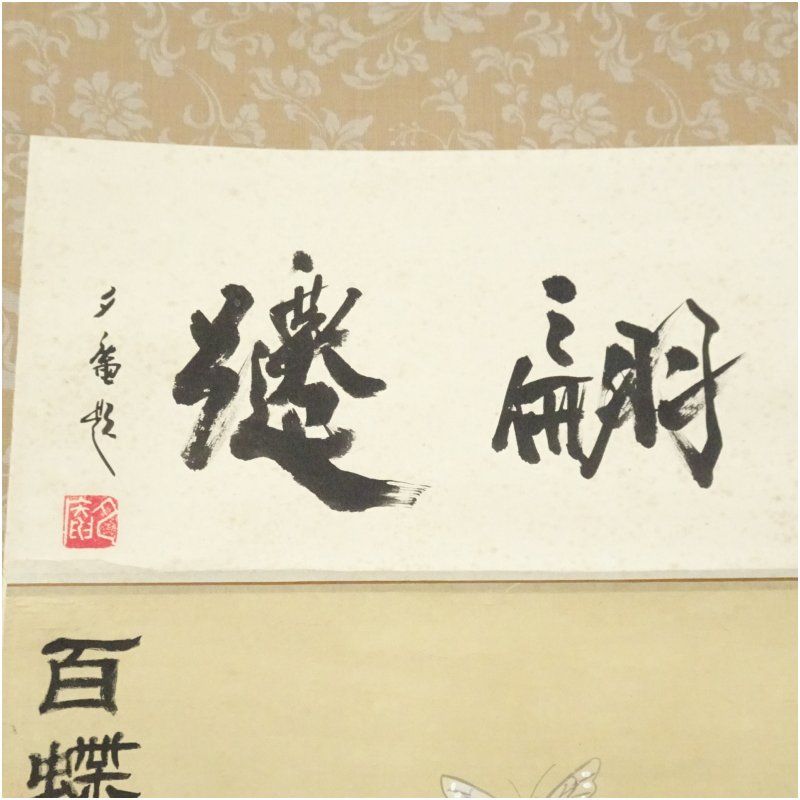 翩躚
夕 題
百蝶